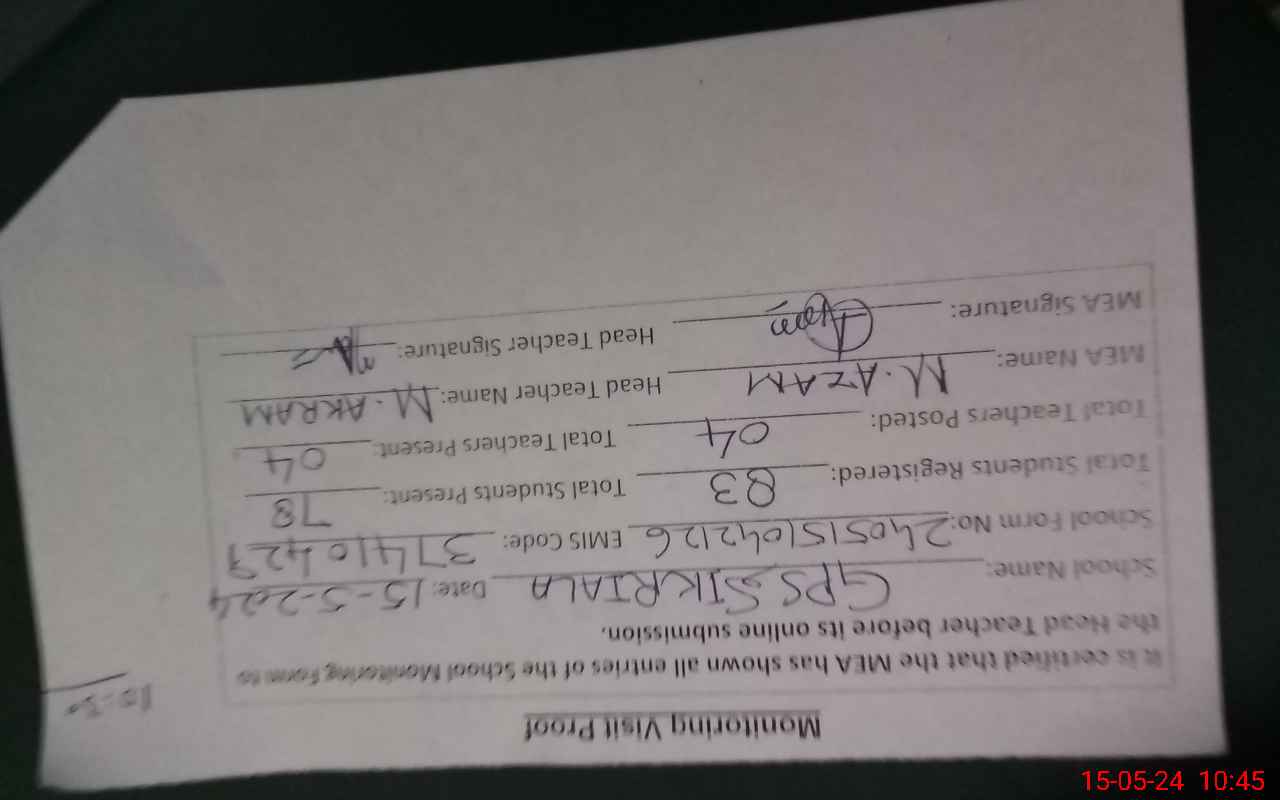 Monitoring Visit Proof
10:30
It is certified that the MEA has shown all entries of the School Monitoring Form to
the Head Teacher before its online submission.
School Name: GPS SIKRIALA Date: 15-5-2024
School Form No: 2405151042126 EMIS Code: 37410429
Total Students Registered: 83 Total Students Present: 78
Total Teachers Posted: 04 Total Teachers Present: 04
MEA Name: M. AZAM Head Teacher Name: M. AKRAM
MEA Signature: Head Teacher Signature:
15-05-24 10:45